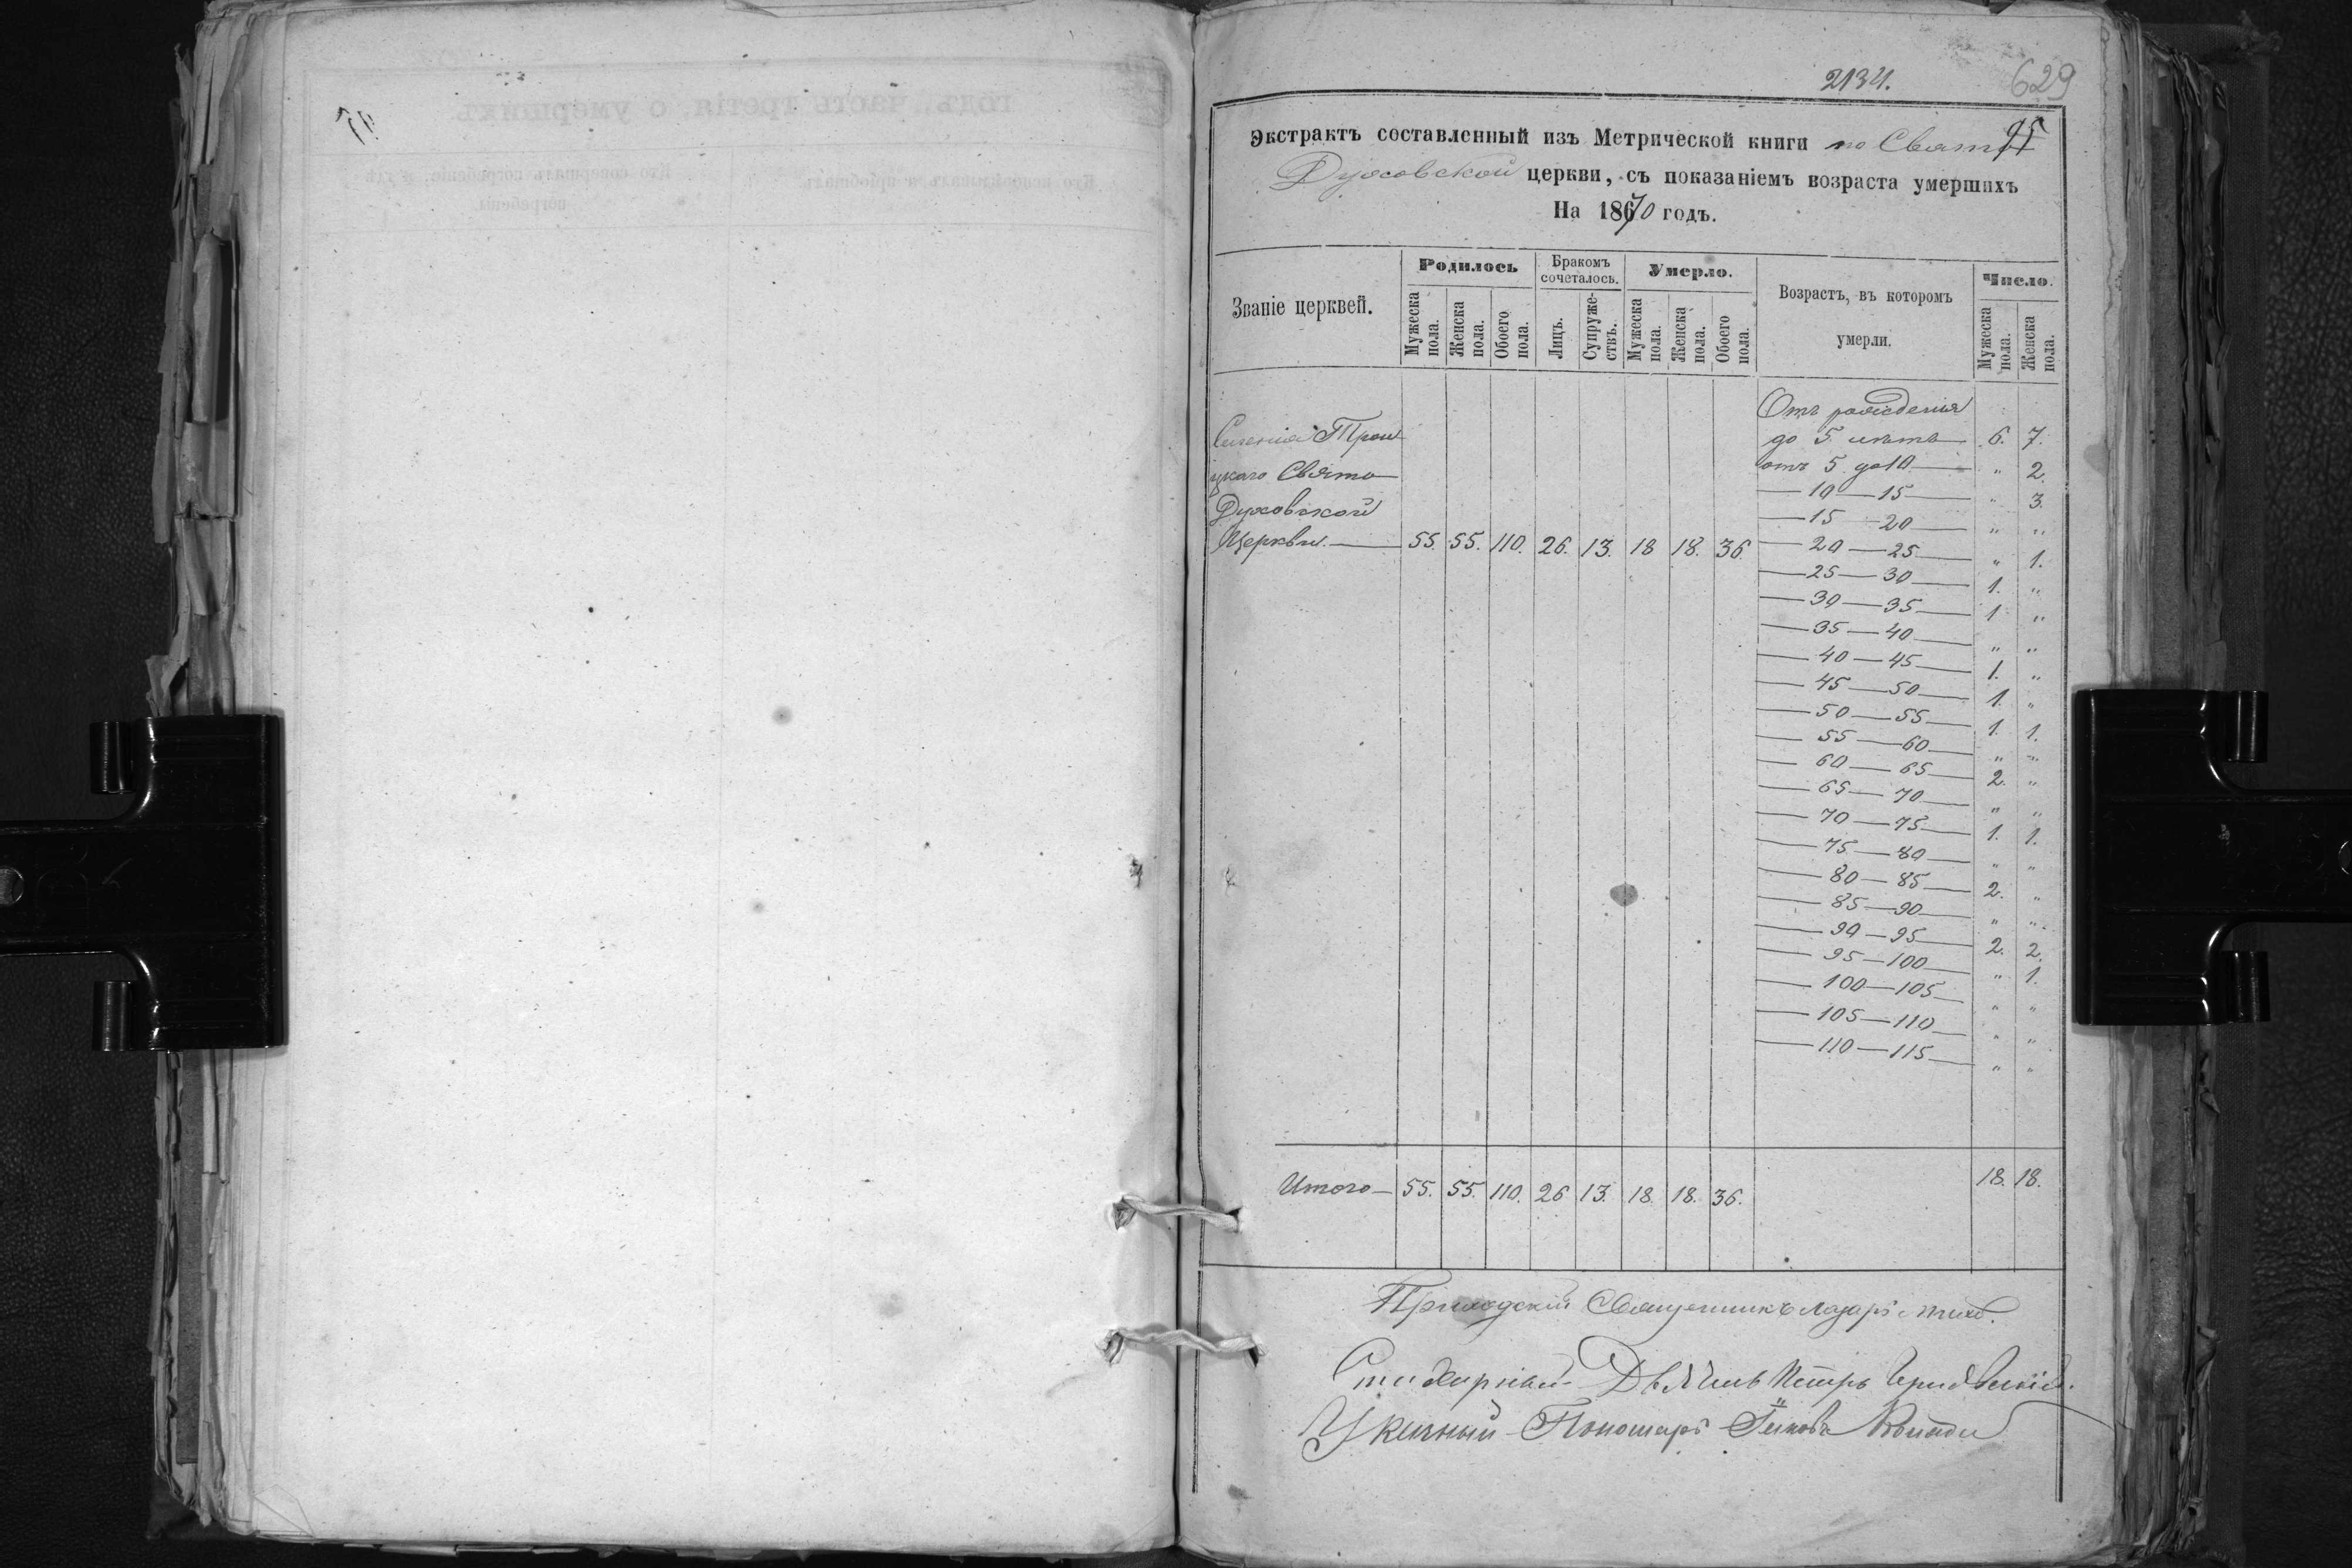 2134.
629
95
Экстрактъ составленный изъ Метрической книги по Свято
Духовской церкви, съ показаніемъ возраста умершихъ
На 1870 годъ.
Званіе церквей.
Родилось
Бракомъ сочеталось.
Умерло.
Возрастъ, въ которомъ умерли.
Число.
Мужеска пола.
Женска пола.
Обоего пола.
Лицъ.
Супружествъ.
Мужеска пола.
Женска пола.
Обоего пола.
Мужеска пола.
Женска пола.
Отъ рожденія
до 5 летъ 6. 7.
отъ 5 до 10 " 2.
10—15 " 3.
15—20 " "
20—25 " 1.
25—30 1. "
30—35 1 "
35—40 " "
40—45 1. "
45—50 1. "
50—55 1. 1.
55—60 " "
60—65 2. "
65—70 " "
70—75 1. 1.
75—80 " "
80—85 2. "
85—90 " "
90—95 2. 2.
95—100 " 1.
100—105 " "
105—110 " "
110—115 " "
Трои
цкаго Свято
Духовской
Церкви. 55. 55. 110. 26. 13. 18 18. 36
Итого 55. 55. 110. 26 13. 18. 18. 36. 18. 18.
Приходскій Священникъ Лазарь
Стихарный Дьячекъ Петръ
Пономарь